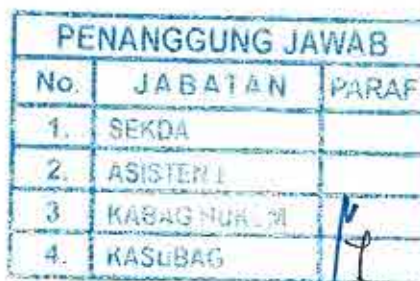 PENANGGUNG JAWAB
No. JABATAN PARAF
1. SEKDA
2. ASISTEN I
3 KABAG HUKUM
4. KASUBAG